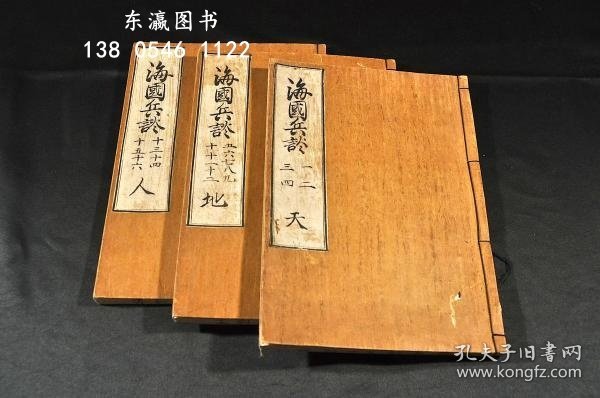 东瀛图书
138 0546 1122
海國兵談
一二
三四
天
海國兵談
五六七八九
十十一十二
地
海國兵談
十三十四
十五十六
人
孔夫子旧书网
www.kongfz.com